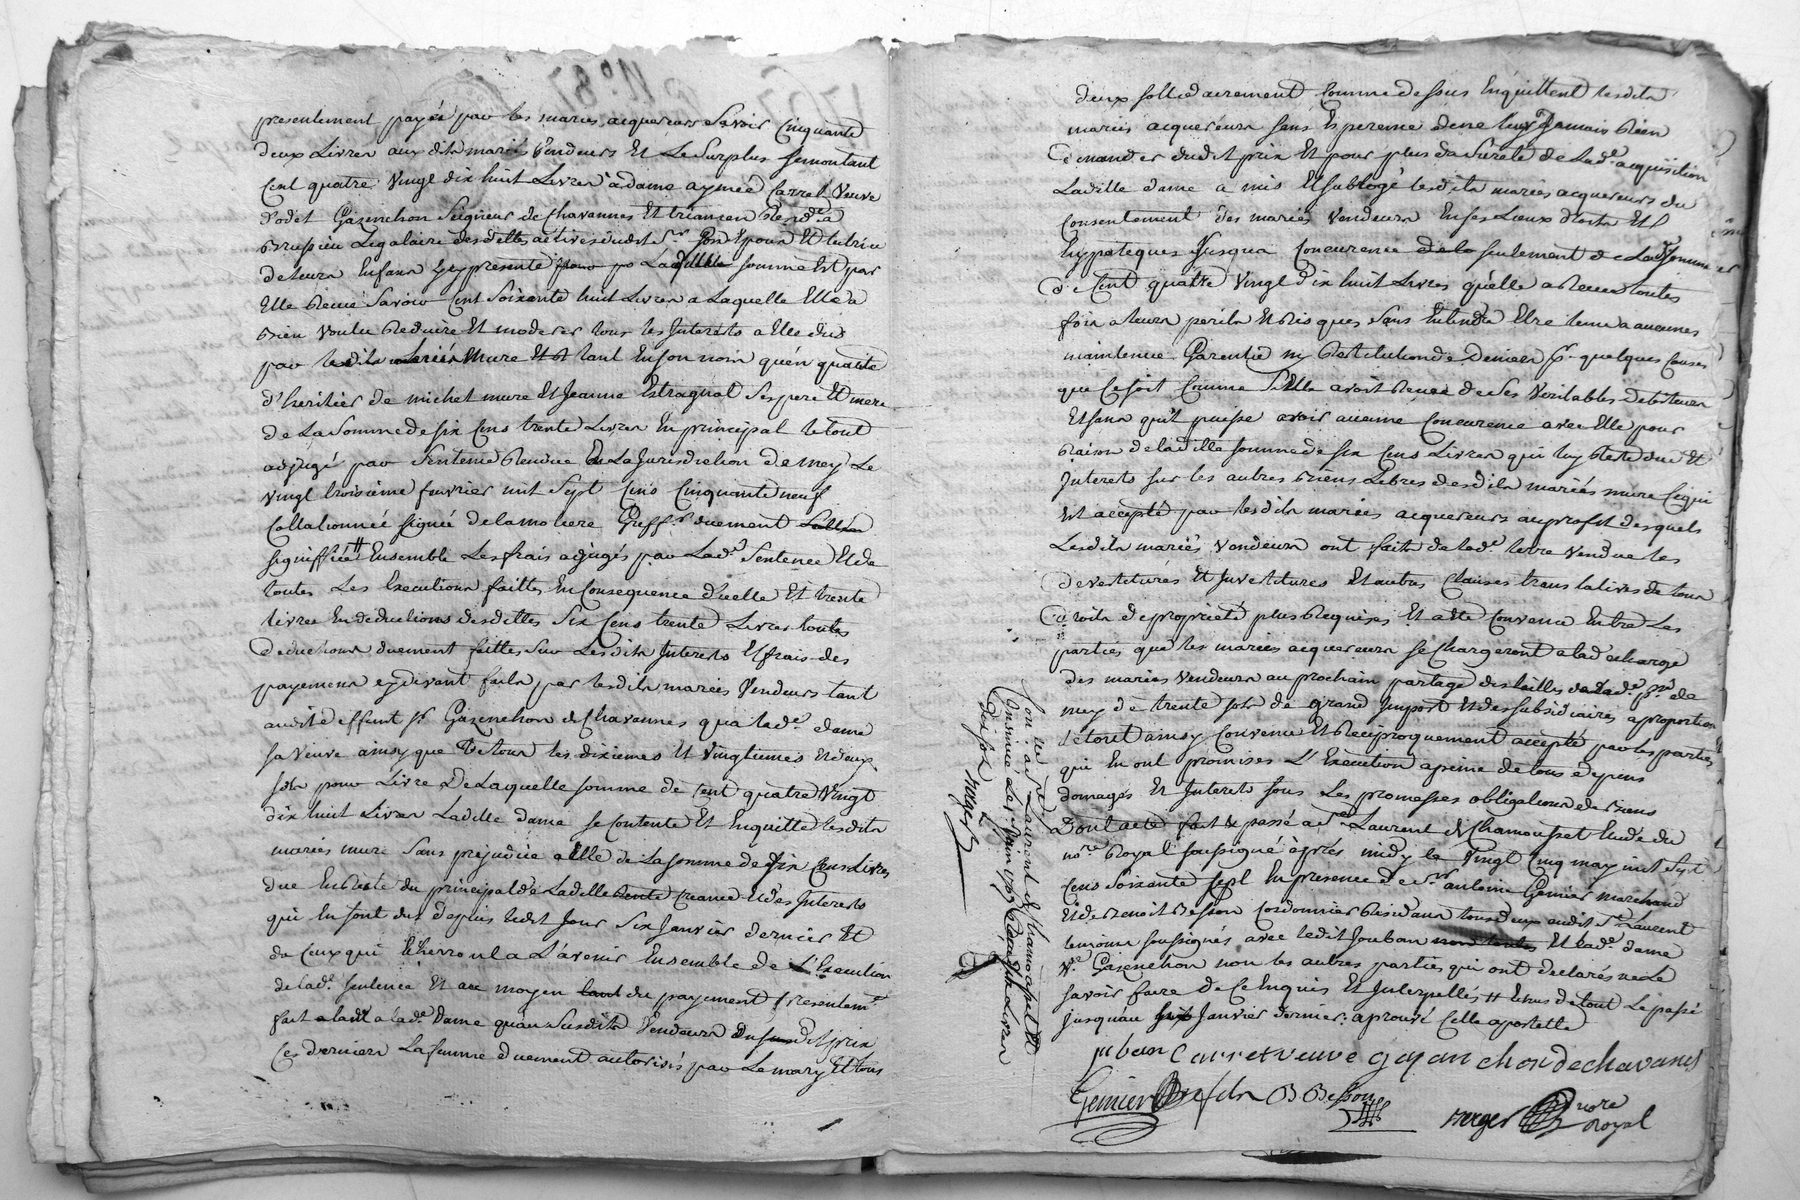 presentement payée par les mariés acquereurs Savoir Cinquante
deux Livres aux dits mariés Vendeurs Et Le Surplus Semontant
Cent quatre Vingt dix huit Livres a dame aymée Carret Veuve
d'odet Gazenchon Seigneur de Chavannes Et trianzen
Brussieu Legataire desdettes actives dudit Sr. Son Epoux Et tutrice
de leurs Enfans ycy presente Laditte Somme Est par
Elle Receue Savoir Cent Soixante huit Livres a Laquelle Elle a
bien voulu Reduire Et moderer tous les Interests a Elle dus
par lesdits mariés Mure tant En Son nom qu'en qualité
d'heritier de michel mure Et Jeanne Estragnat Ses pere Et mere
de La Somme de Six Cens trente Livres En principal le tout
adjugé par Sentence Rendue En La Jurisdiction de mey Le
vingt troisieme fevrier mil Sept Cens Cinquante neuf
Collationnée Signée de lamoliere Greffr. duement
Signiffiée # Ensemble Les frais adjugés par Lade. Sentence Et de
toutes Les Executions faittes En Consequence d'icelle Et trente
livres En deductions desdittes Six Cens trente Livres toutes
deductions duement faittes Sur Les dits Interests Et frais des
payemens cy devant faits par lesdits mariés Vendeurs tant
audit deffunt Sr. Gazenchon de Chavannes qua lade. dame
Sa Veuve ainsy que de tous les dixiemes Et Vingtiemes Et deux
Sols pour Livre De Laquelle Somme de Cent quatre Vingt
dix huit Livres Laditte dame Se Contente Et Enquitte lesdits
mariés mure Sans prejudice a Elle de La Somme de Six Cens Livres
due En Reste du principal de Laditte Creance Et des Interests
qui En Sont dus depuis ledit Jour Six Janvier dernier Et
de Ceux qui Echerront a L'avenir Ensemble de L'Execution
delade. Sentence Et au moyen du payement presentemt.
fait a lade. Dame quaux Susdits Vendeurs dudit prix
Ces derniers La femme duement autorisée par Le mary Et tous
deux Sollidairement Comme dessus Enquittent lesdits
mariés acquereurs Sans Esperance d'ene leurs Jamais Rien
demander dudit prix Et pour plus de Sureté de Lade. acquisition
Laditte dame a mis Et Subrogé lesdits mariés acquereurs du
Consentement des mariés Vendeurs En Ses Lieux droits Et
hypoteques Jusqua Concurence Seulement de Lade. Somme
de Cent quatre Vingt dix huit Livres quelle a Receue toutes
fois a leurs perils Et Risques Sans Entendre Etre tenue a aucunes
maintenue Garentie ny Restitution de Deniers pr. quelques Causes
que Ce Soit Comme Si Elle avoit Receue de Ses Veritables debiteurs
Et Sans qu'il puisse avoir aucune Concurence avec Elle pour
Raison de laditte Somme de Six Cens Livres qui luy Reste due Et
Interets Sur les autres biens Libres desdits mariés mure Ce qui
Est accepté par lesdits mariés acquereurs au profit desquels
Lesdits mariés Vendeurs ont faits de lade. terre vendue les
devestitures Et Investitures Et autres Clauses translatives de tous
droits de propriété plus Requises Et a Eté Convenu Entre Les
parties que les mariés acquereurs Se Chargeront a la decharge
des mariés vendeurs au prochain partage des tailles de lade. psse. de
mey de trente Sols de grand Import Et des Subsidiaires a proportion
le tout ainsy Convenu Et Reciproquement accepté par les parties
qui En ont promises L'Execution a peine de tous depens
domages Et Interets Sous Les promesses obligations de biens
Dont acte fait & passé a St. Laurent de Chamousset Etude du
nore. Royal Soussigné après midy le Vingt Cinq may mil Sept
Cens Soixante Sept En presence de Sr. antoine Genier marchand
Et de Benoit Besson Cordonnier Residans tous deux audit St. Laurent
temoins Soussignés avec ledit Jouban Et lade. dame
Ve. Gazenchon non les autres parties qui ont declarés ne le
Savoir faire de Ce Enquis Et Interpellés # Echus de tout Le passé
jusquau Six Janvier dernier: aprouvé Cette apostille
Con. ... a St. Laurent de Chamousset
Insinué Le Juin 1767
dix Sols
juban Carret veuve gazanchon de chavanes
Genier fils B Besson
nore
royal